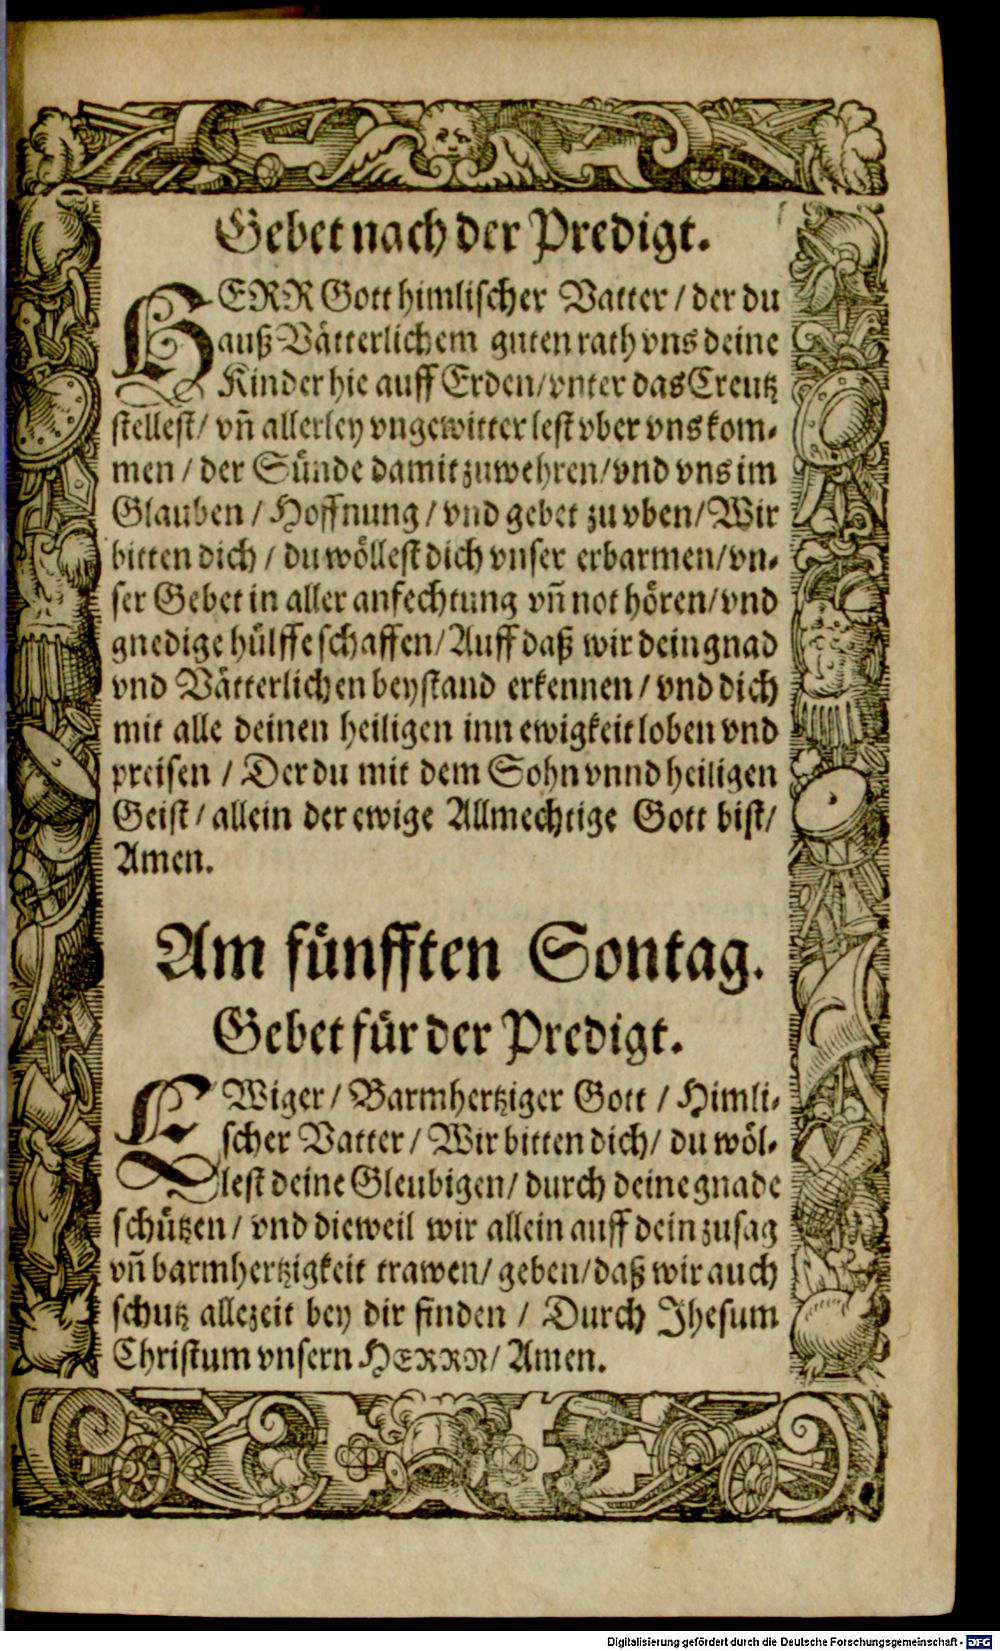 Gebet nach der Predigt.
HERR Gott himlischer Vatter / der du
auß Vätterlichem guten rath vns deine
Kinder hie auff Erden / vnter das Creutz
stellest / vñ allerley vngewitter lest vber vns kom-
men / der Sünde damit zuwehren / vnd vns im
Glauben / Hoffnung / vnd gebet zu vben / Wir
bitten dich / du wöllest dich vnser erbarmen / vn-
ser Gebet in aller anfechtung vñ not hören / vnd
gnedige hülffe schaffen / Auff daß wir dein gnad
vnd Vätterlichen beystand erkennen / vnd dich
mit alle deinen heiligen inn ewigkeit loben vnd
preisen / Der du mit dem Sohn vnnd heiligen
Geist / allein der ewige Allmechtige Gott bist /
Amen.
Am fünfften Sontag.
Gebet für der Predigt.
EWiger / Barmhertziger Gott / Himli-
scher Vatter / Wir bitten dich / du wöl-
lest deine Gleubigen / durch deine gnade
schützen / vnd dieweil wir allein auff dein zusag
vñ barmhertzigkeit trawen / geben / daß wir auch
schutz allezeit bey dir finden / Durch Jhesum
Christum vnsern HERRN / Amen.
Digitalisierung gefördert durch die Deutsche Forschungsgemeinschaft - DFG